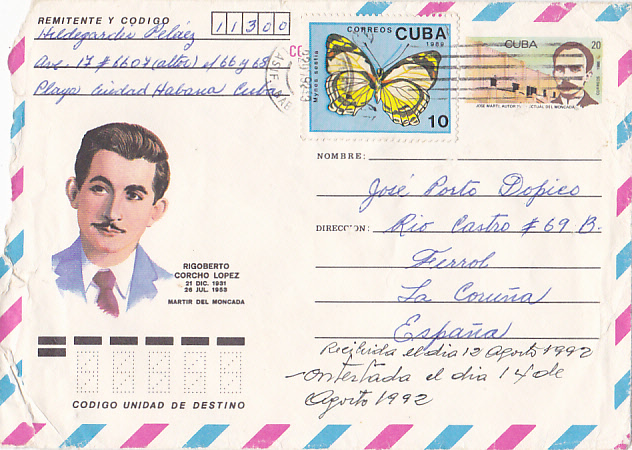 REMITENTE Y CODIGO 11300
Hildegardis Peláez
Ave. 17 # 6607 (altos) e/ 66 y 68
Playa Ciudad Habana Cuba
CORREOS CUBA
1989
Mynes sestia
10
CUBA 20
JOSE MARTI, AUTOR INTELECTUAL DEL MONCADA
NOMBRE:
José Porto Dopico
DIRECCION: Rio Castro # 69 B.
Ferrol
La Coruña
España
RIGOBERTO
CORCHO LOPEZ
21 DIC. 1931
26 JUL. 1953
MARTIR DEL MONCADA
Recibida el dia 12 Agosto 1992
Contestada el dia 14 de
Agosto 1992
CODIGO UNIDAD DE DESTINO